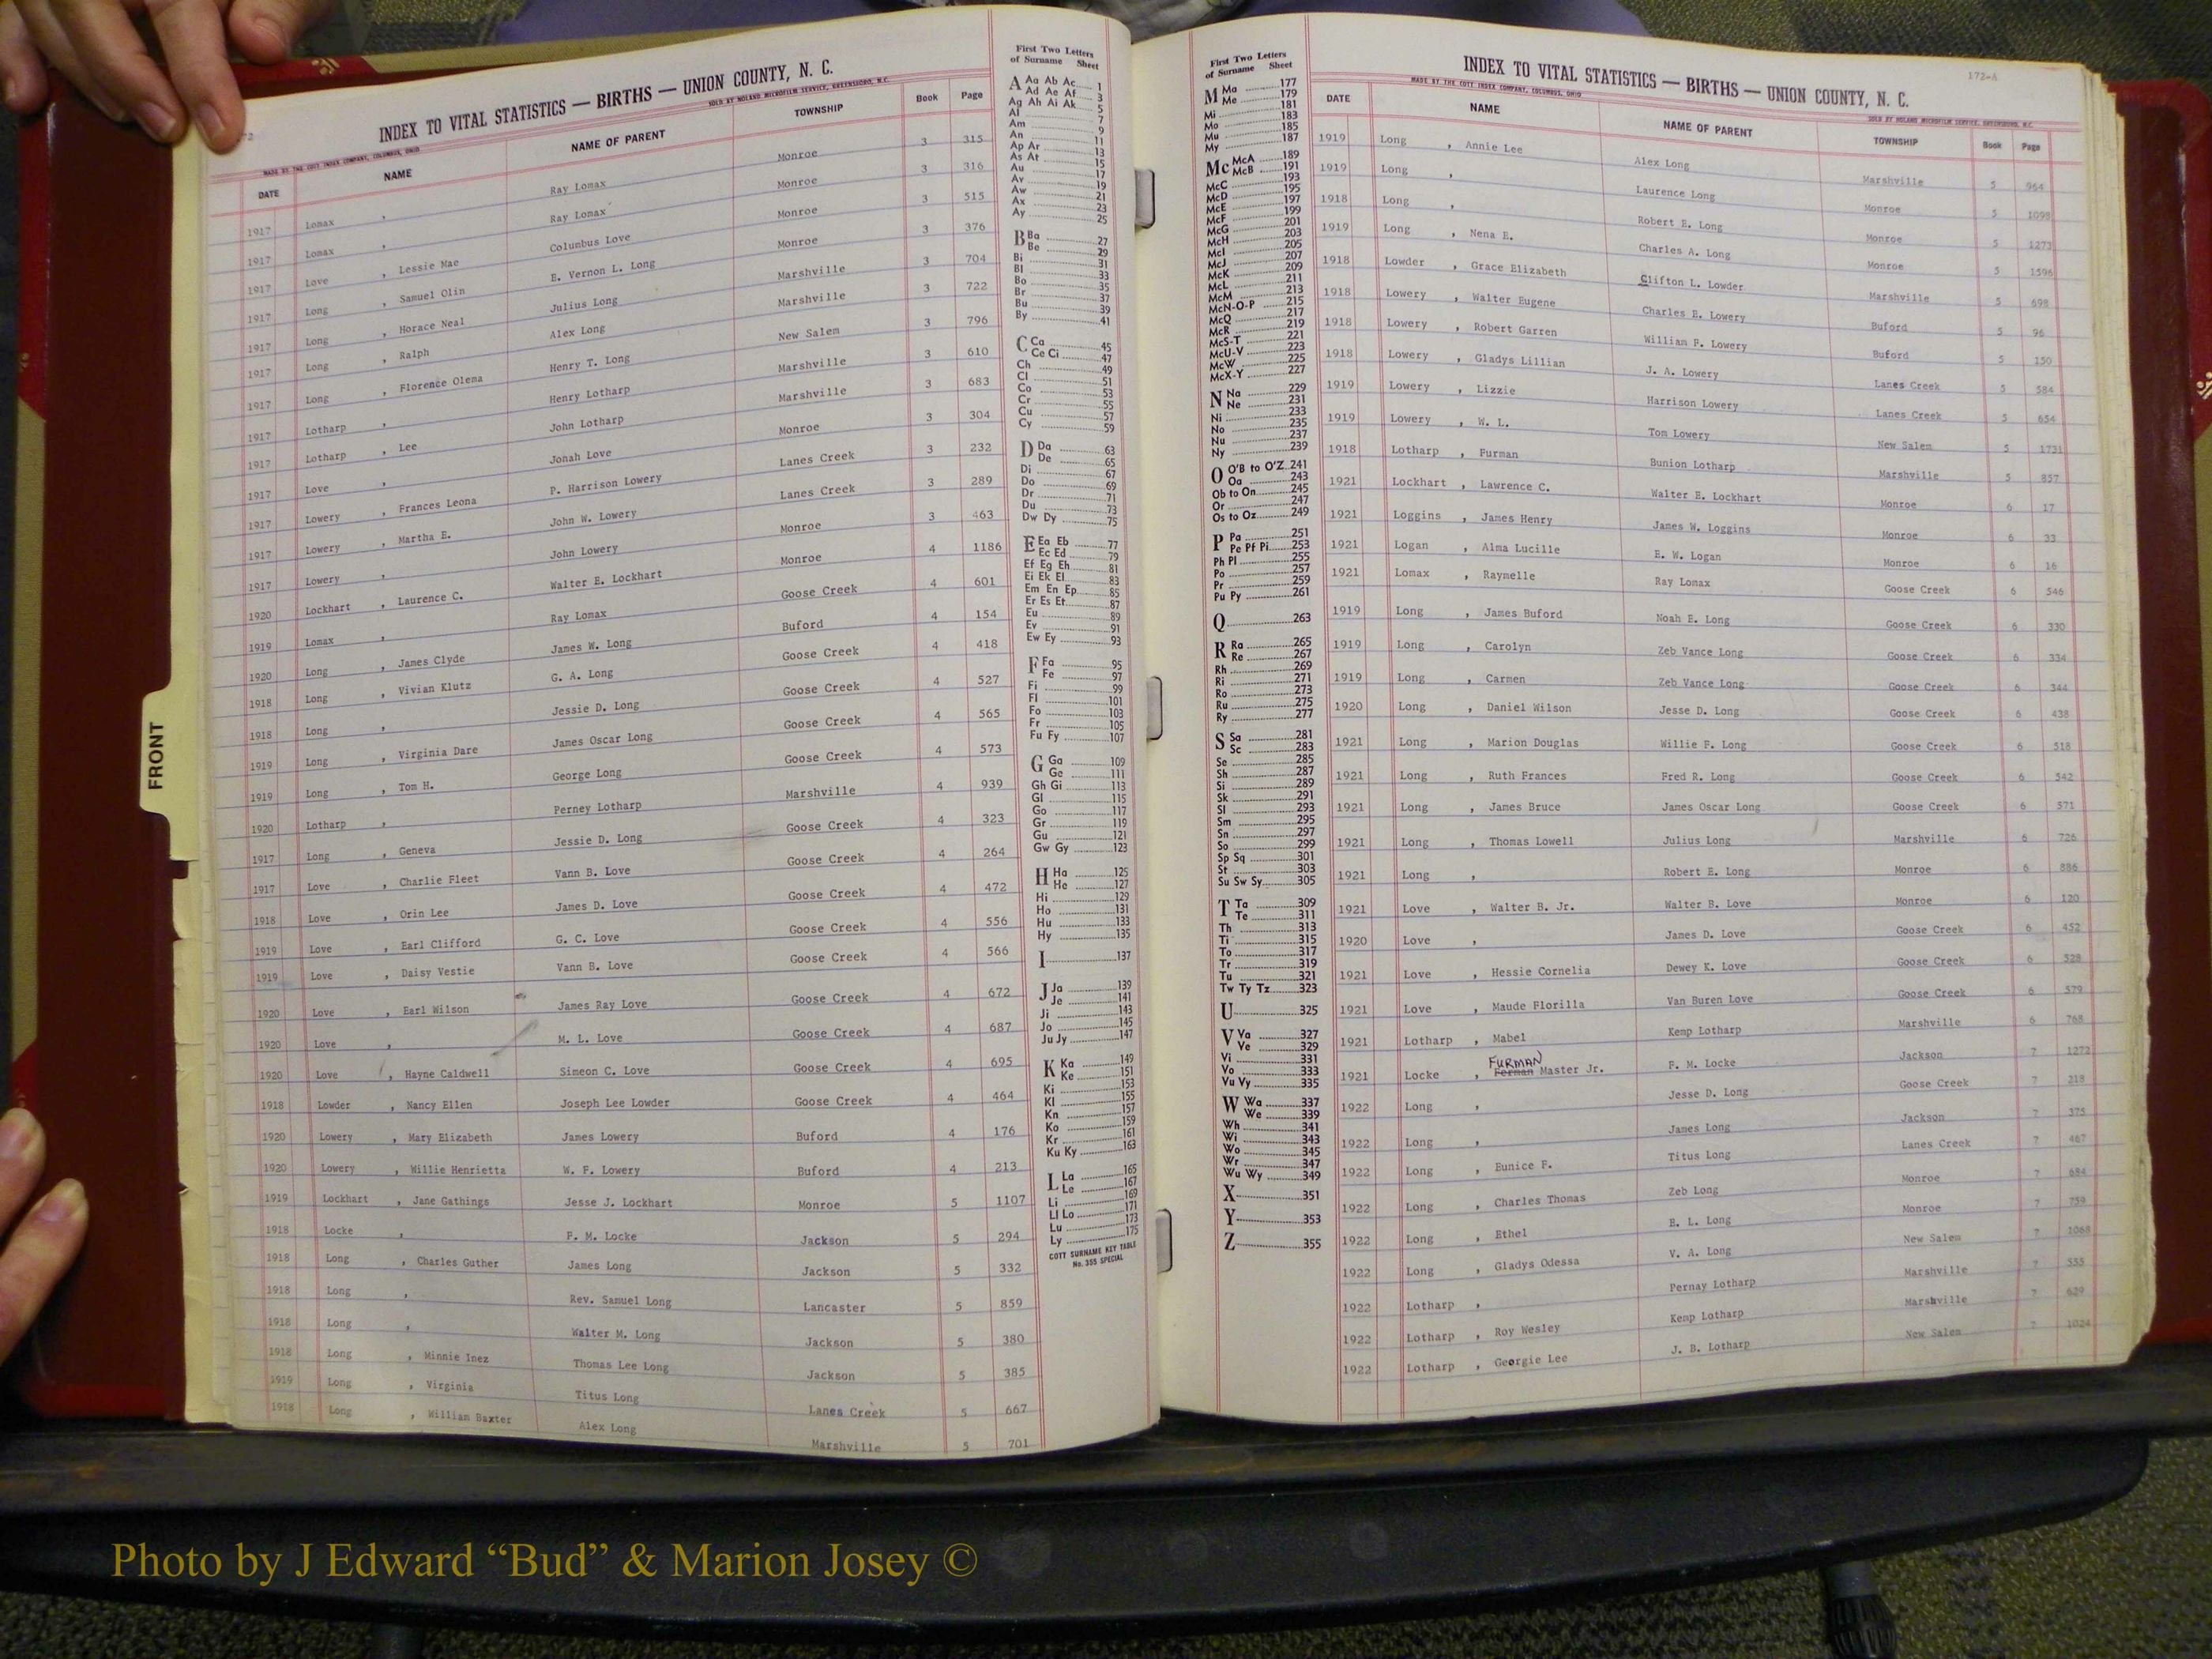 72
INDEX TO VITAL STATISTICS — BIRTHS — UNION COUNTY, N. C.
MADE BY THE COTT INDEX COMPANY, COLUMBUS, OHIO
SOLD BY NOLAND MICROFILM SERVICE, GREENSBORO, N.C.
DATE NAME NAME OF PARENT TOWNSHIP Book Page
1917 Lomax , Ray Lomax Monroe 3 315
1917 Lomax , Ray Lomax Monroe 3 316
1917 Love , Lessie Mae Columbus Love Monroe 3 515
1917 Long , Samuel Olin E. Vernon L. Long Monroe 3 376
1917 Long , Horace Neal Julius Long Marshville 3 704
1917 Long , Ralph Alex Long Marshville 3 722
1917 Long , Florence Olema Henry T. Long New Salem 3 796
1917 Lotharp , Henry Lotharp Marshville 3 610
1917 Lotharp , Lee John Lotharp Marshville 3 683
1917 Love , Jonah Love Monroe 3 304
1917 Lowery , Frances Leona P. Harrison Lowery Lanes Creek 3 232
1917 Lowery , Martha E. John W. Lowery Lanes Creek 3 289
1917 Lowery , John Lowery Monroe 3 463
1920 Lockhart , Laurence C. Walter E. Lockhart Monroe 4 1186
1919 Lomax , Ray Lomax Goose Creek 4 601
1920 Long , James Clyde James W. Long Buford 4 154
1918 Long , Vivian Klutz G. A. Long Goose Creek 4 418
1918 Long , Jessie D. Long Goose Creek 4 527
1919 Long , Virginia Dare James Oscar Long Goose Creek 4 565
1919 Long , Tom H. George Long Goose Creek 4 573
1920 Lotharp , Perney Lotharp Marshville 4 939
1917 Long , Geneva Jessie D. Long Goose Creek 4 323
1917 Love , Charlie Fleet Vann B. Love Goose Creek 4 264
1918 Love , Orin Lee James D. Love Goose Creek 4 472
1919 Love , Earl Clifford G. C. Love Goose Creek 4 556
1919 Love , Daisy Vestie Vann B. Love Goose Creek 4 566
1920 Love , Earl Wilson James Ray Love Goose Creek 4 672
1920 Love , M. L. Love Goose Creek 4 687
1920 Love , Hayne Caldwell Simeon C. Love Goose Creek 4 695
1918 Lowder , Nancy Ellen Joseph Lee Lowder Goose Creek 4 464
1920 Lowery , Mary Elizabeth James Lowery Buford 4 176
1920 Lowery , Willie Henrietta W. F. Lowery Buford 4 213
1919 Lockhart , Jane Gathings Jesse J. Lockhart Monroe 5 1107
1918 Locke , F. M. Locke Jackson 5 294
1918 Long , Charles Guther James Long Jackson 5 332
1918 Long , Rev. Samuel Long Lancaster 5 859
1918 Long , Walter M. Long Jackson 5 380
1918 Long , Minnie Inez Thomas Lee Long Jackson 5 385
1919 Long , Virginia Titus Long Lanes Creek 5 667
1918 Long , William Baxter Alex Long Marshville 5 701
FRONT
First Two Letters
of Surname Sheet
A Aa Ab Ac 1
Ad Ae Af 3
Ag Ah Ai Ak 5
Al 7
Am 9
An 11
Ap Ar 13
As At 15
Au 17
Av 19
Aw 21
Ax 23
Ay 25
B Ba 27
Be 29
Bi 31
Bl 33
Bo 35
Br 37
Bu 39
By 41
C Ca 45
Ce Ci 47
Ch 49
Cl 51
Co 53
Cr 55
Cu 57
Cy 59
D Da 63
De 65
Di 67
Do 69
Dr 71
Du 73
Dw Dy 75
E Ea Eb 77
Ec Ed 79
Ef Eg Eh 81
Ei Ek El 83
Em En Ep 85
Er Es Et 87
Eu 89
Ev 91
Ew Ey 93
F Fa 95
Fe 97
Fi 99
Fl 101
Fo 103
Fr 105
Fu Fy 107
G Ga 109
Ge 111
Gh Gi 113
Gl 115
Go 117
Gr 119
Gu 121
Gw Gy 123
H Ha 125
He 127
Hi 129
Ho 131
Hu 133
Hy 135
I 137
J Ja 139
Je 141
Ji 143
Jo 145
Ju Jy 147
K Ka 149
Ke 151
Ki 153
Kl 155
Kn 157
Ko 159
Kr 161
Ku Ky 163
L La 165
Le 167
Li 169
Ll Lo 171
Lu 173
Ly 175
COTT SURNAME KEY TABLE
No. 355 SPECIAL
First Two Letters
of Surname Sheet
M Ma 177
Me 179
Mi 181
Mo 183
Mu 185
My 187
Mc McA 189
McB 191
McC 193
McD 195
McE 197
McF 199
McG 201
McH 203
McI 205
McJ 207
McK 209
McL 211
McM 213
McN-O-P 215
McQ 217
McR 219
McS-T 221
McU-V 223
McW 225
McX-Y 227
N Na 229
Ne 231
Ni 233
No 235
Nu 237
Ny 239
O O'B to O'Z 241
Oa 243
Ob to On 245
Or 247
Os to Oz 249
P Pa 251
Pe Pf Pi 253
Ph Pl 255
Po 257
Pr 259
Pu Py 261
Q 263
R Ra 265
Re 267
Rh 269
Ri 271
Ro 273
Ru 275
Ry 277
S Sa 281
Sc 283
Se 285
Sh 287
Si 289
Sk 291
Sl 293
Sm 295
Sn 297
So 299
Sp Sq 301
St 303
Su Sw Sy 305
T Ta 309
Te 311
Th 313
Ti 315
To 317
Tr 319
Tu 321
Tw Ty Tz 323
U 325
V Va 327
Ve 329
Vi 331
Vo 333
Vu Vy 335
W Wa 337
We 339
Wh 341
Wi 343
Wo 345
Wr 347
Wu Wy 349
X 351
Y 353
Z 355
172-A
INDEX TO VITAL STATISTICS — BIRTHS — UNION COUNTY, N. C.
MADE BY THE COTT INDEX COMPANY, COLUMBUS, OHIO
SOLD BY NOLAND MICROFILM SERVICE, GREENSBORO, N.C.
DATE NAME NAME OF PARENT TOWNSHIP Book Page
1919 Long , Annie Lee Alex Long Marshville 5 964
1919 Long , Laurence Long Monroe 5 1098
1918 Long , Robert E. Long Monroe 5 1273
1919 Long , Nena E. Charles A. Long Monroe 5 1596
1918 Lowder , Grace Elizabeth Clifton L. Lowder Marshville 5 698
1918 Lowery , Walter Eugene Charles E. Lowery Buford 5 96
1918 Lowery , Robert Garren William F. Lowery Buford 5 150
1918 Lowery , Gladys Lillian J. A. Lowery Lanes Creek 5 584
1919 Lowery , Lizzie Harrison Lowery Lanes Creek 5 654
1919 Lowery , W. L. Tom Lowery New Salem 5 1731
1918 Lotharp , Furman Bunion Lotharp Marshville 5 857
1921 Lockhart , Lawrence C. Walter E. Lockhart Monroe 6 17
1921 Loggins , James Henry James W. Loggins Monroe 6 33
1921 Logan , Alma Lucille E. W. Logan Monroe 6 16
1921 Lomax , Raymelle Ray Lomax Goose Creek 6 546
1919 Long , James Buford Noah E. Long Goose Creek 6 330
1919 Long , Carolyn Zeb Vance Long Goose Creek 6 334
1919 Long , Carmen Zeb Vance Long Goose Creek 6 344
1920 Long , Daniel Wilson Jesse D. Long Goose Creek 6 438
1921 Long , Marion Douglas Willie F. Long Goose Creek 6 518
1921 Long , Ruth Frances Fred R. Long Goose Creek 6 542
1921 Long , James Bruce James Oscar Long Goose Creek 6 571
1921 Long , Thomas Lowell Julius Long Marshville 6 726
1921 Long , Robert E. Long Monroe 6 886
1921 Love , Walter B. Jr. Walter B. Love Monroe 6 120
1920 Love , James D. Love Goose Creek 6 452
1921 Love , Hessie Cornelia Dewey K. Love Goose Creek 6 528
1921 Love , Maude Florilla Van Buren Love Goose Creek 6 579
1921 Lotharp , Mabel Kemp Lotharp Marshville 6 768
FURMAN
1921 Locke , Ferman Master Jr. F. M. Locke Jackson 7 1272
1922 Long , Jesse D. Long Goose Creek 7 218
1922 Long , James Long Jackson 7 375
1922 Long , Eunice F. Titus Long Lanes Creek 7 467
1922 Long , Charles Thomas Zeb Long Monroe 7 684
1922 Long , Ethel B. L. Long Monroe 7 759
1922 Long , Gladys Odessa V. A. Long New Salem 7 1068
1922 Lotharp , Pernay Lotharp Marshville 7 555
1922 Lotharp , Roy Wesley Kemp Lotharp Marshville 7 629
1922 Lotharp , Georgie Lee J. B. Lotharp New Salem 7 1024
Photo by J Edward “Bud” & Marion Josey ©